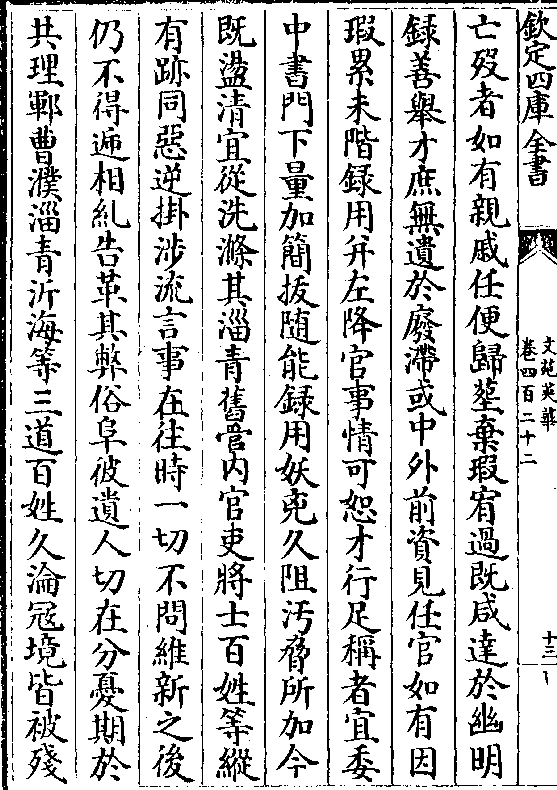 欽定四庫全書
文苑英華
卷四百二十二
十三
亡歿者如有親戚任便歸塟棄瑕宥過既咸達於幽明
録善舉才庶無遺於廢滯或中外前資見任官如有因
瑕累未階録用并左降官事情可恕才行足稱者宜委
中書門下量加簡拔随能録用妖兇久阻汚脅所加今
既盪清宜從洗滌其淄青舊管内官吏將士百姓等縱
有跡同惡逆掛涉流言事在往時一切不問維新之後
仍不得逓相糺告革其弊俗阜彼遺人切在分憂期於
共理鄆曹濮淄青沂海等三道百姓久淪冦境皆被殘